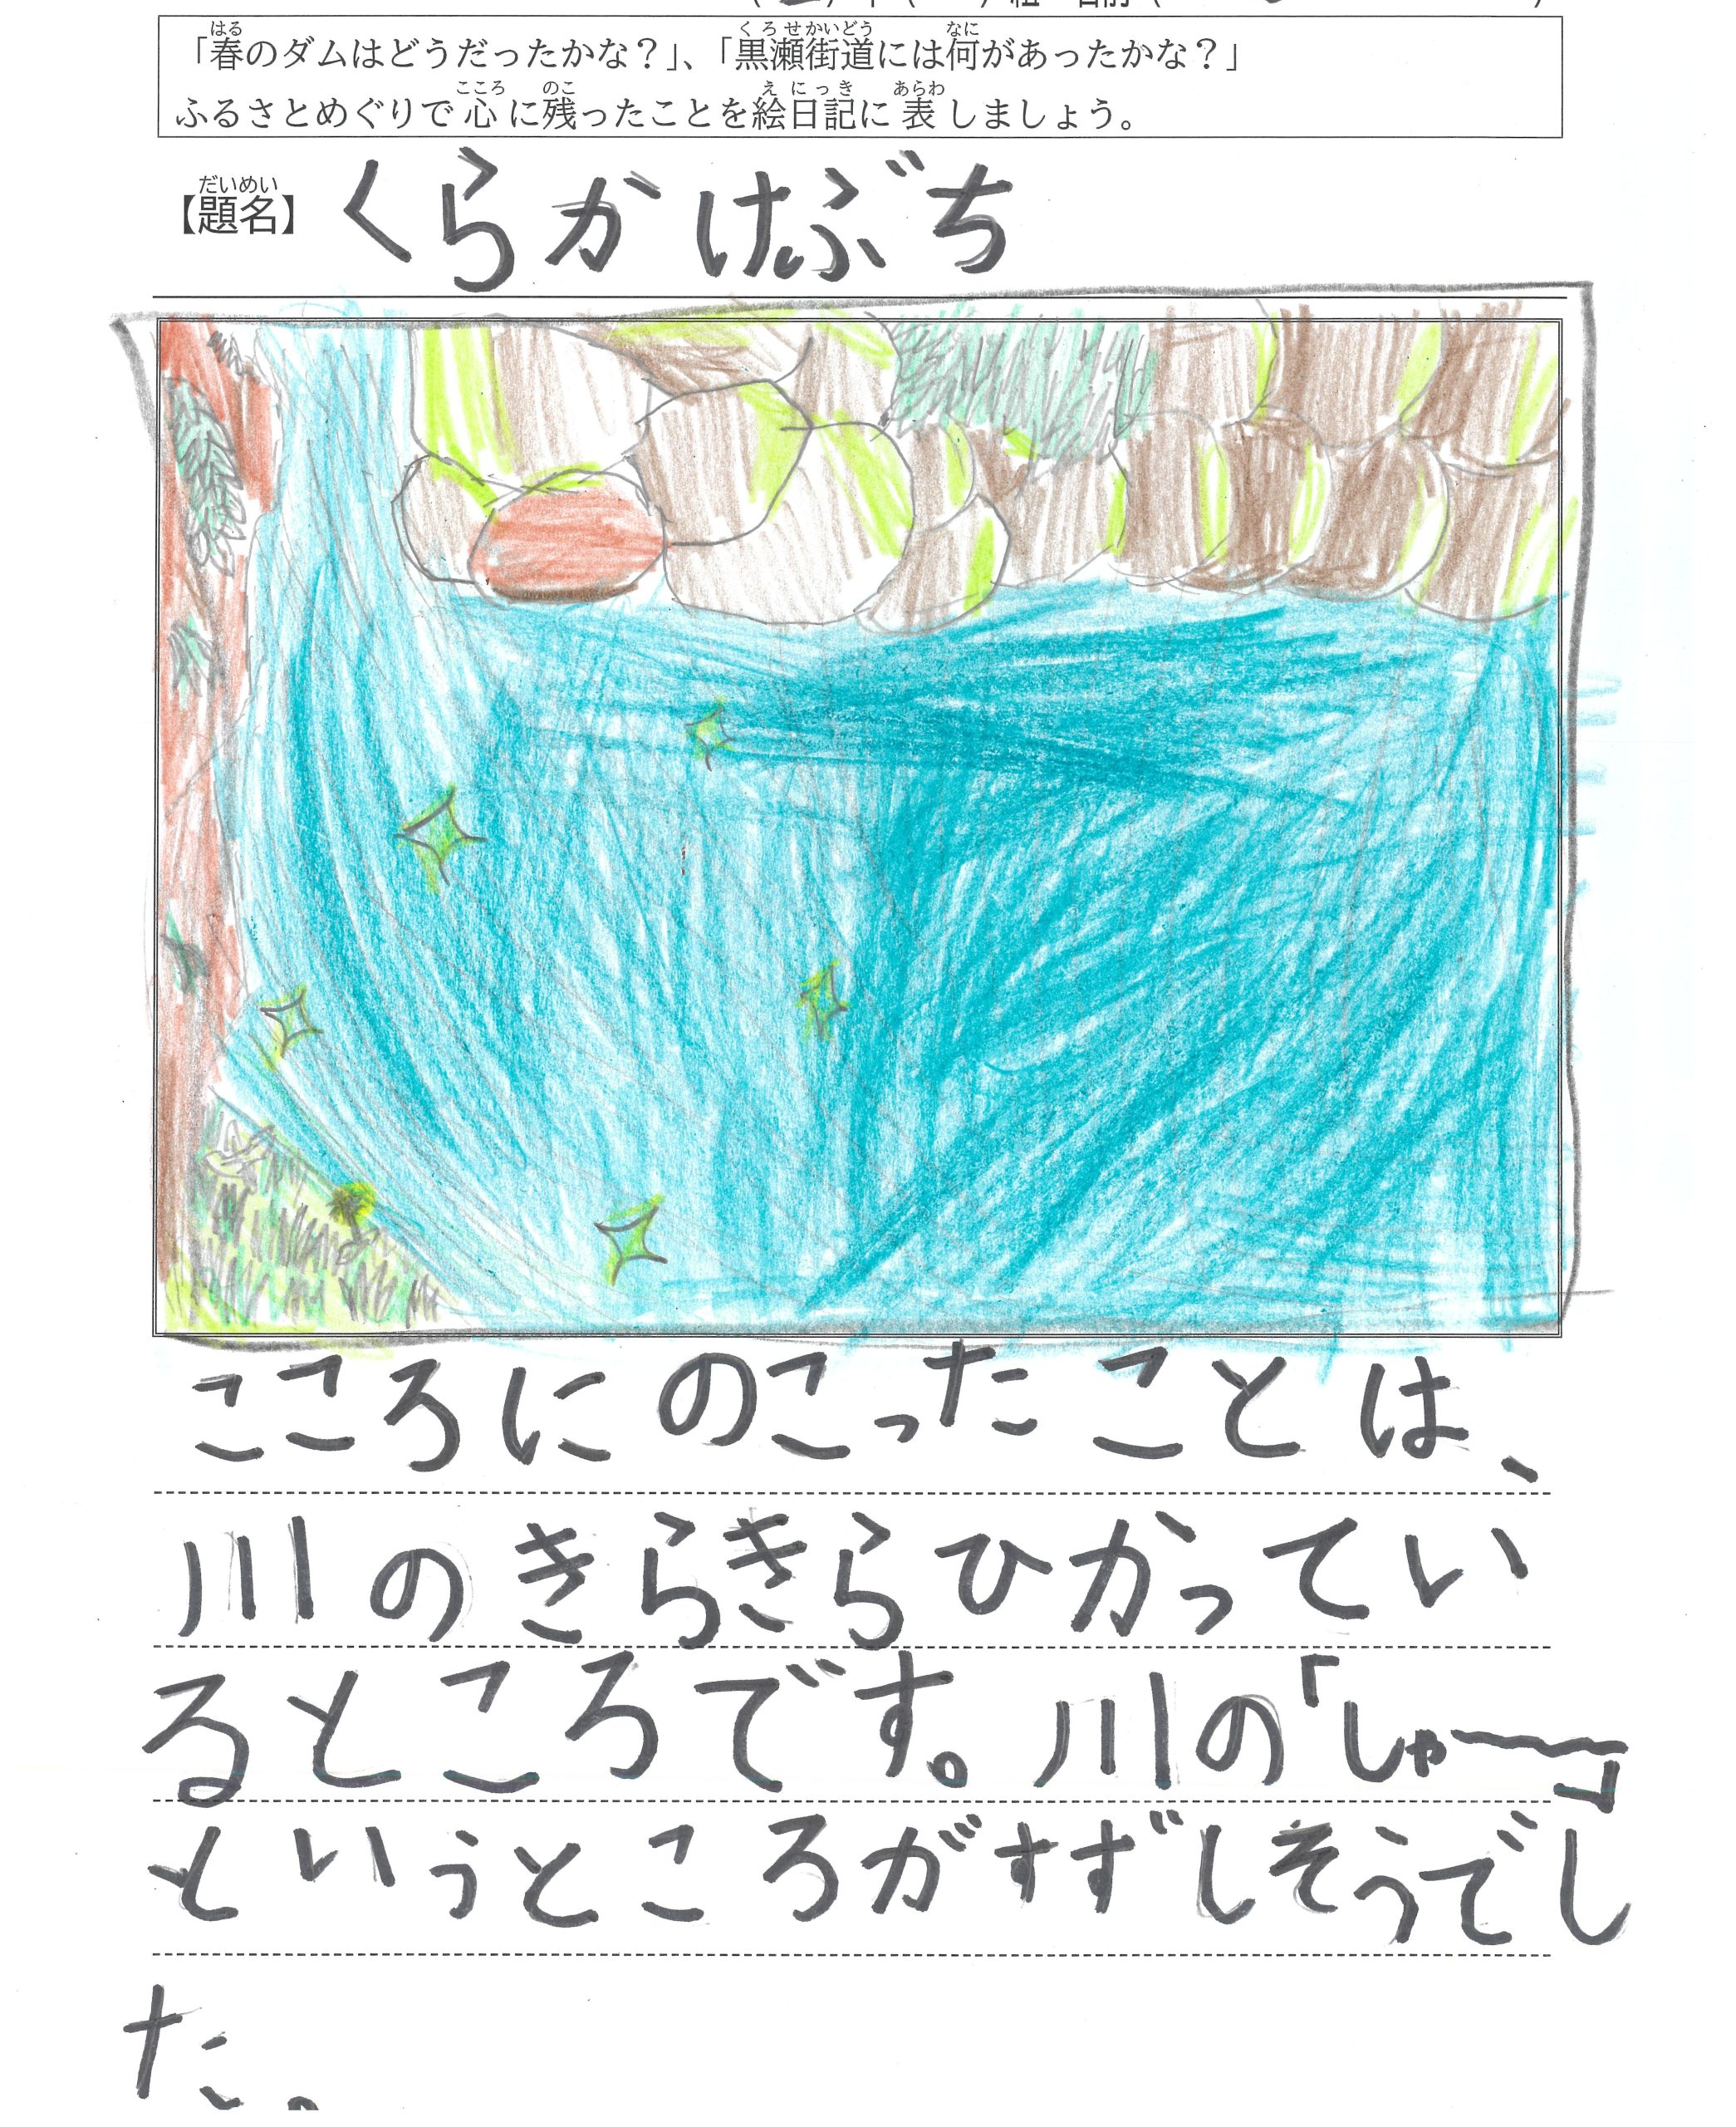 「春のダムはどうだったかな？」、「黒瀬街道には何があったかな？」
ふるさとめぐりで心に残ったことを絵日記に表しましょう。
【題名】くらかけぶち
こころにのこったことは、
川のきらきらひかってい
るところです。川の「しゃ〜〜」
というところがすずしそうでし
た。